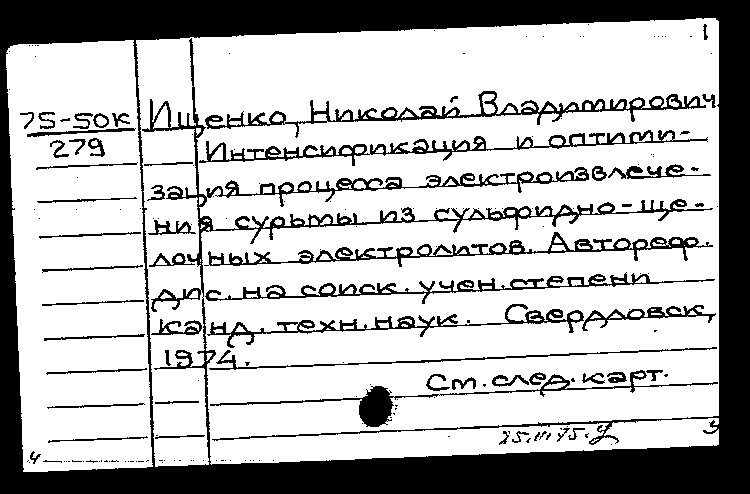 1
75-50к Ищенко, Николай Владимирович
279 Интенсификация и оптими-
зация процесса электроизвлече-
ния сурьмы из сульфидно-ще-
лочных электролитов. Автореф.
дис. на соиск. учен. степени
канд. техн. наук. Свердловск,
1974.
См. след. карт.